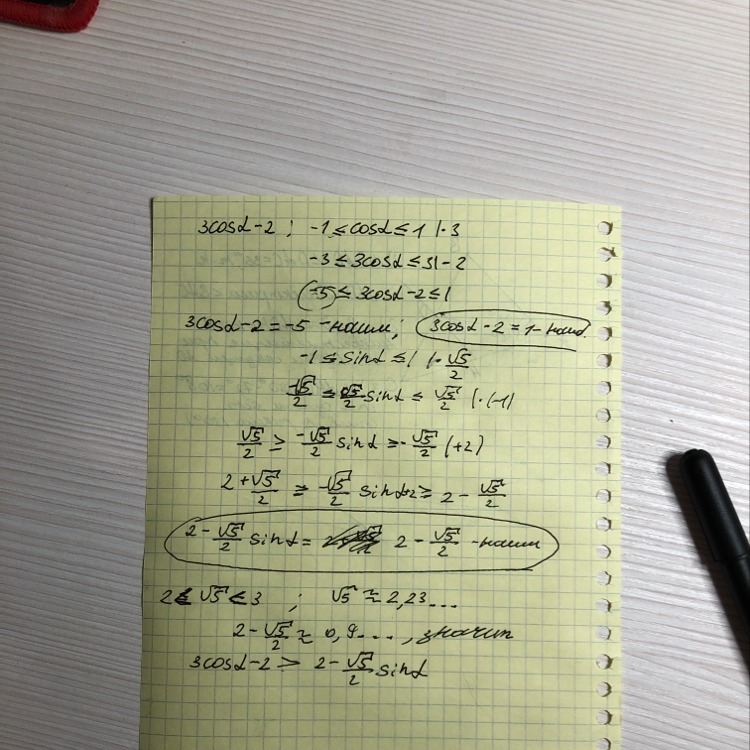 3cosα-2 ; -1 ≤ cosα ≤ 1 |·3
-3 ≤ 3cosα ≤ 3 | - 2
-5 ≤ 3cosα-2 ≤ 1
3cosα-2 = -5 - наим; 3cosα-2 = 1 - наиб.
-1 ≤ sinα ≤ 1 |· √5/2
-√5/2 ≤ √5/2 sinα ≤ √5/2 |·(-1)
√5/2 ≥ -√5/2 sinα ≥ -√5/2 (+2)
2+√5/2 ≥ -√5/2 sinα+2 ≥ 2 - √5/2
2-√5/2 sinα = 2 - √5/2 - наим
2 < √5 < 3 ; √5 ≈ 2,23...
2-√5/2 ≈ 0,9..., значит
3cosα-2 > 2-√5/2 sinα